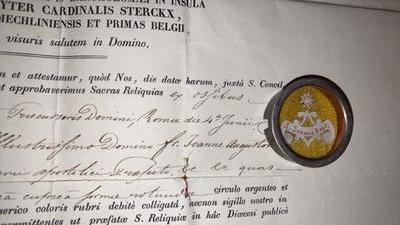 YTER CARDINALIS STERCKX,
MECHLINIENSIS ET PRIMAS BELGII,
visuris salutem in Domino.
m et attestamur, quòd Nos, die datæ harum, juxtà S. Concil.
et approbaverimus Sacras Reliquias ex ossibus
Præcursoris Domini, Romæ die 4ª Junii
Illustrissimo Domino fr. Joanne Augustin
apostolici Præfecto, &c &c quas
cupreâ formæ rotundæ circulo argenteo et
serico coloris rubri debitè colligatâ, necnon sigillo nostro in
mittentes ut præfatæ S. Reliquiæ in hâc Diœcesi publicè